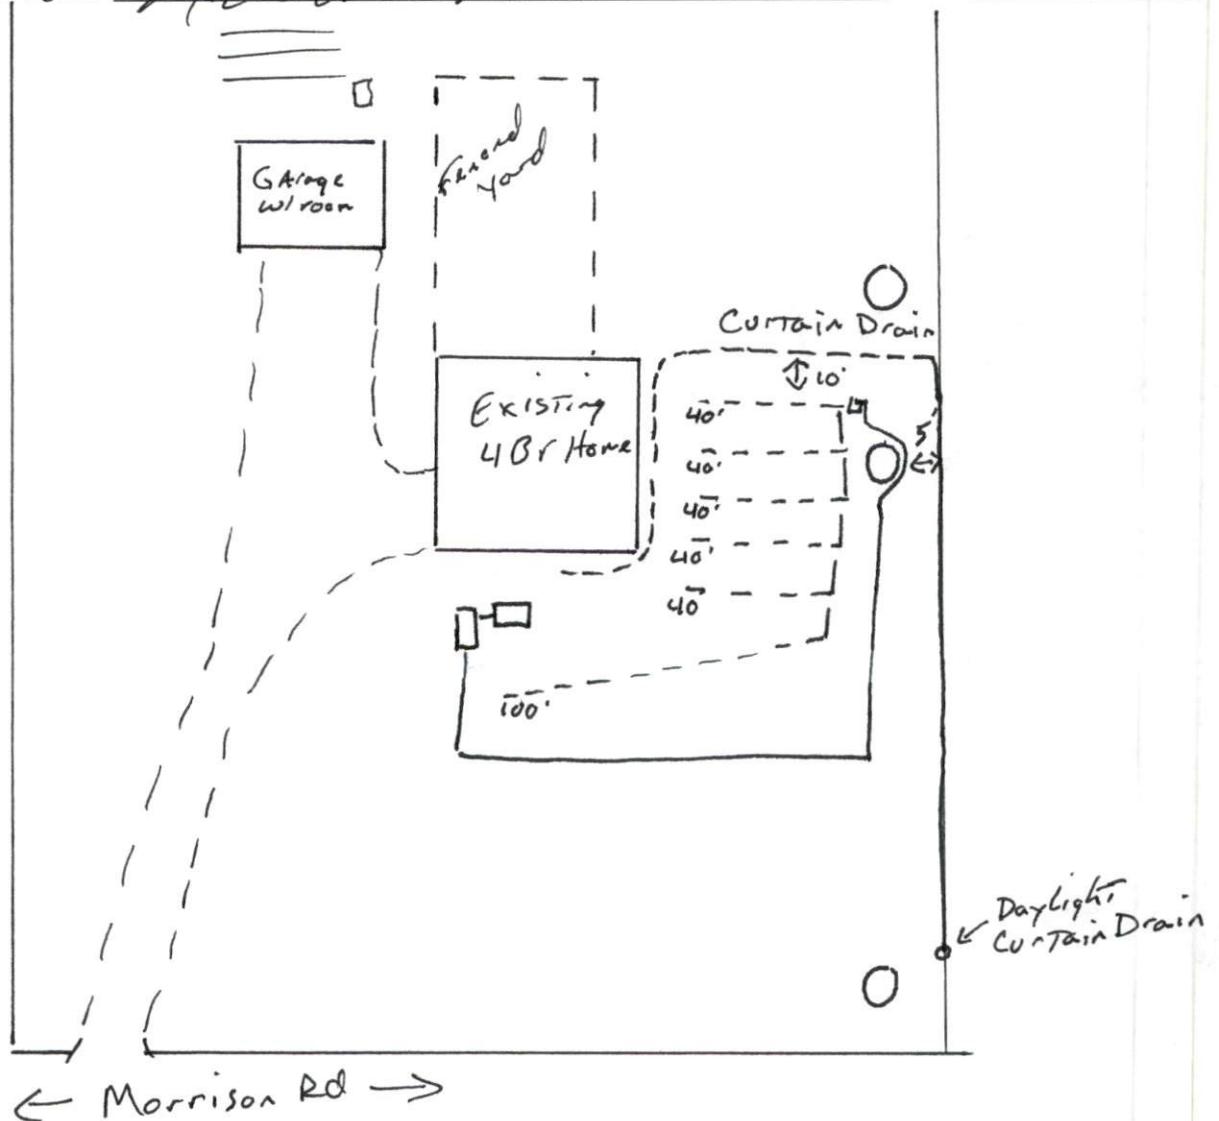 GArage
w/room
Fenced
Yard
Curtain Drain
10'
Existing
4 Br Home
40'
5'
40'
40'
40'
40
100'
Daylight
Curtain Drain
Morrison Rd